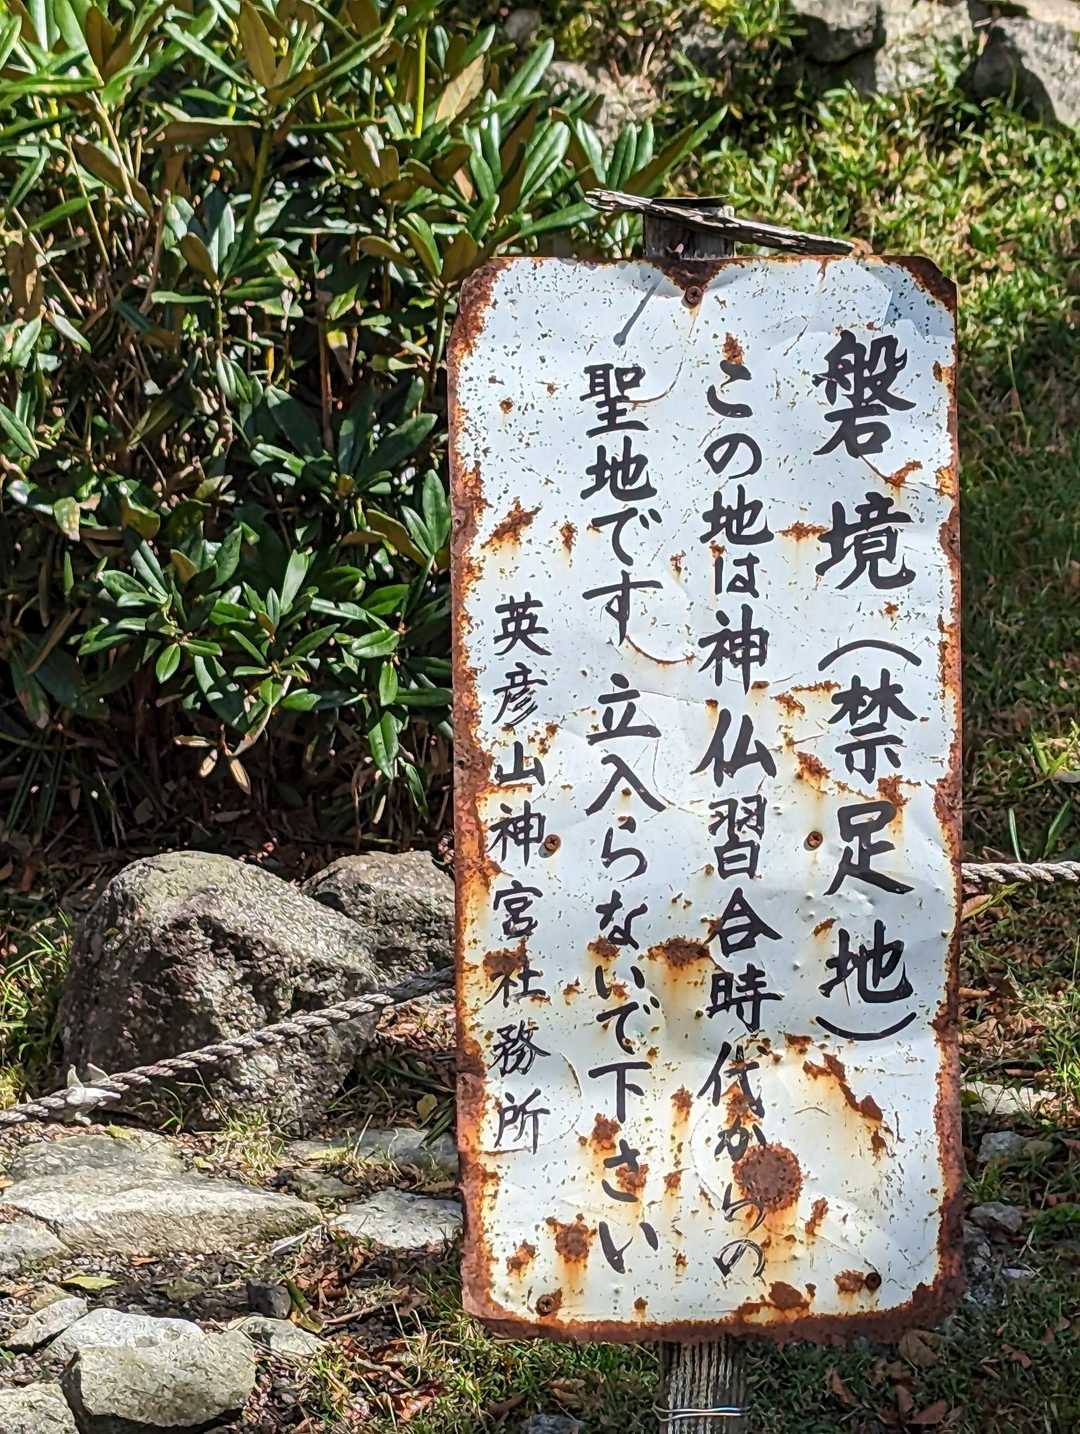 磐境（禁足地）
この地は神仏習合時代からの
聖地です立入らないで下さい
英彦山神宮社務所